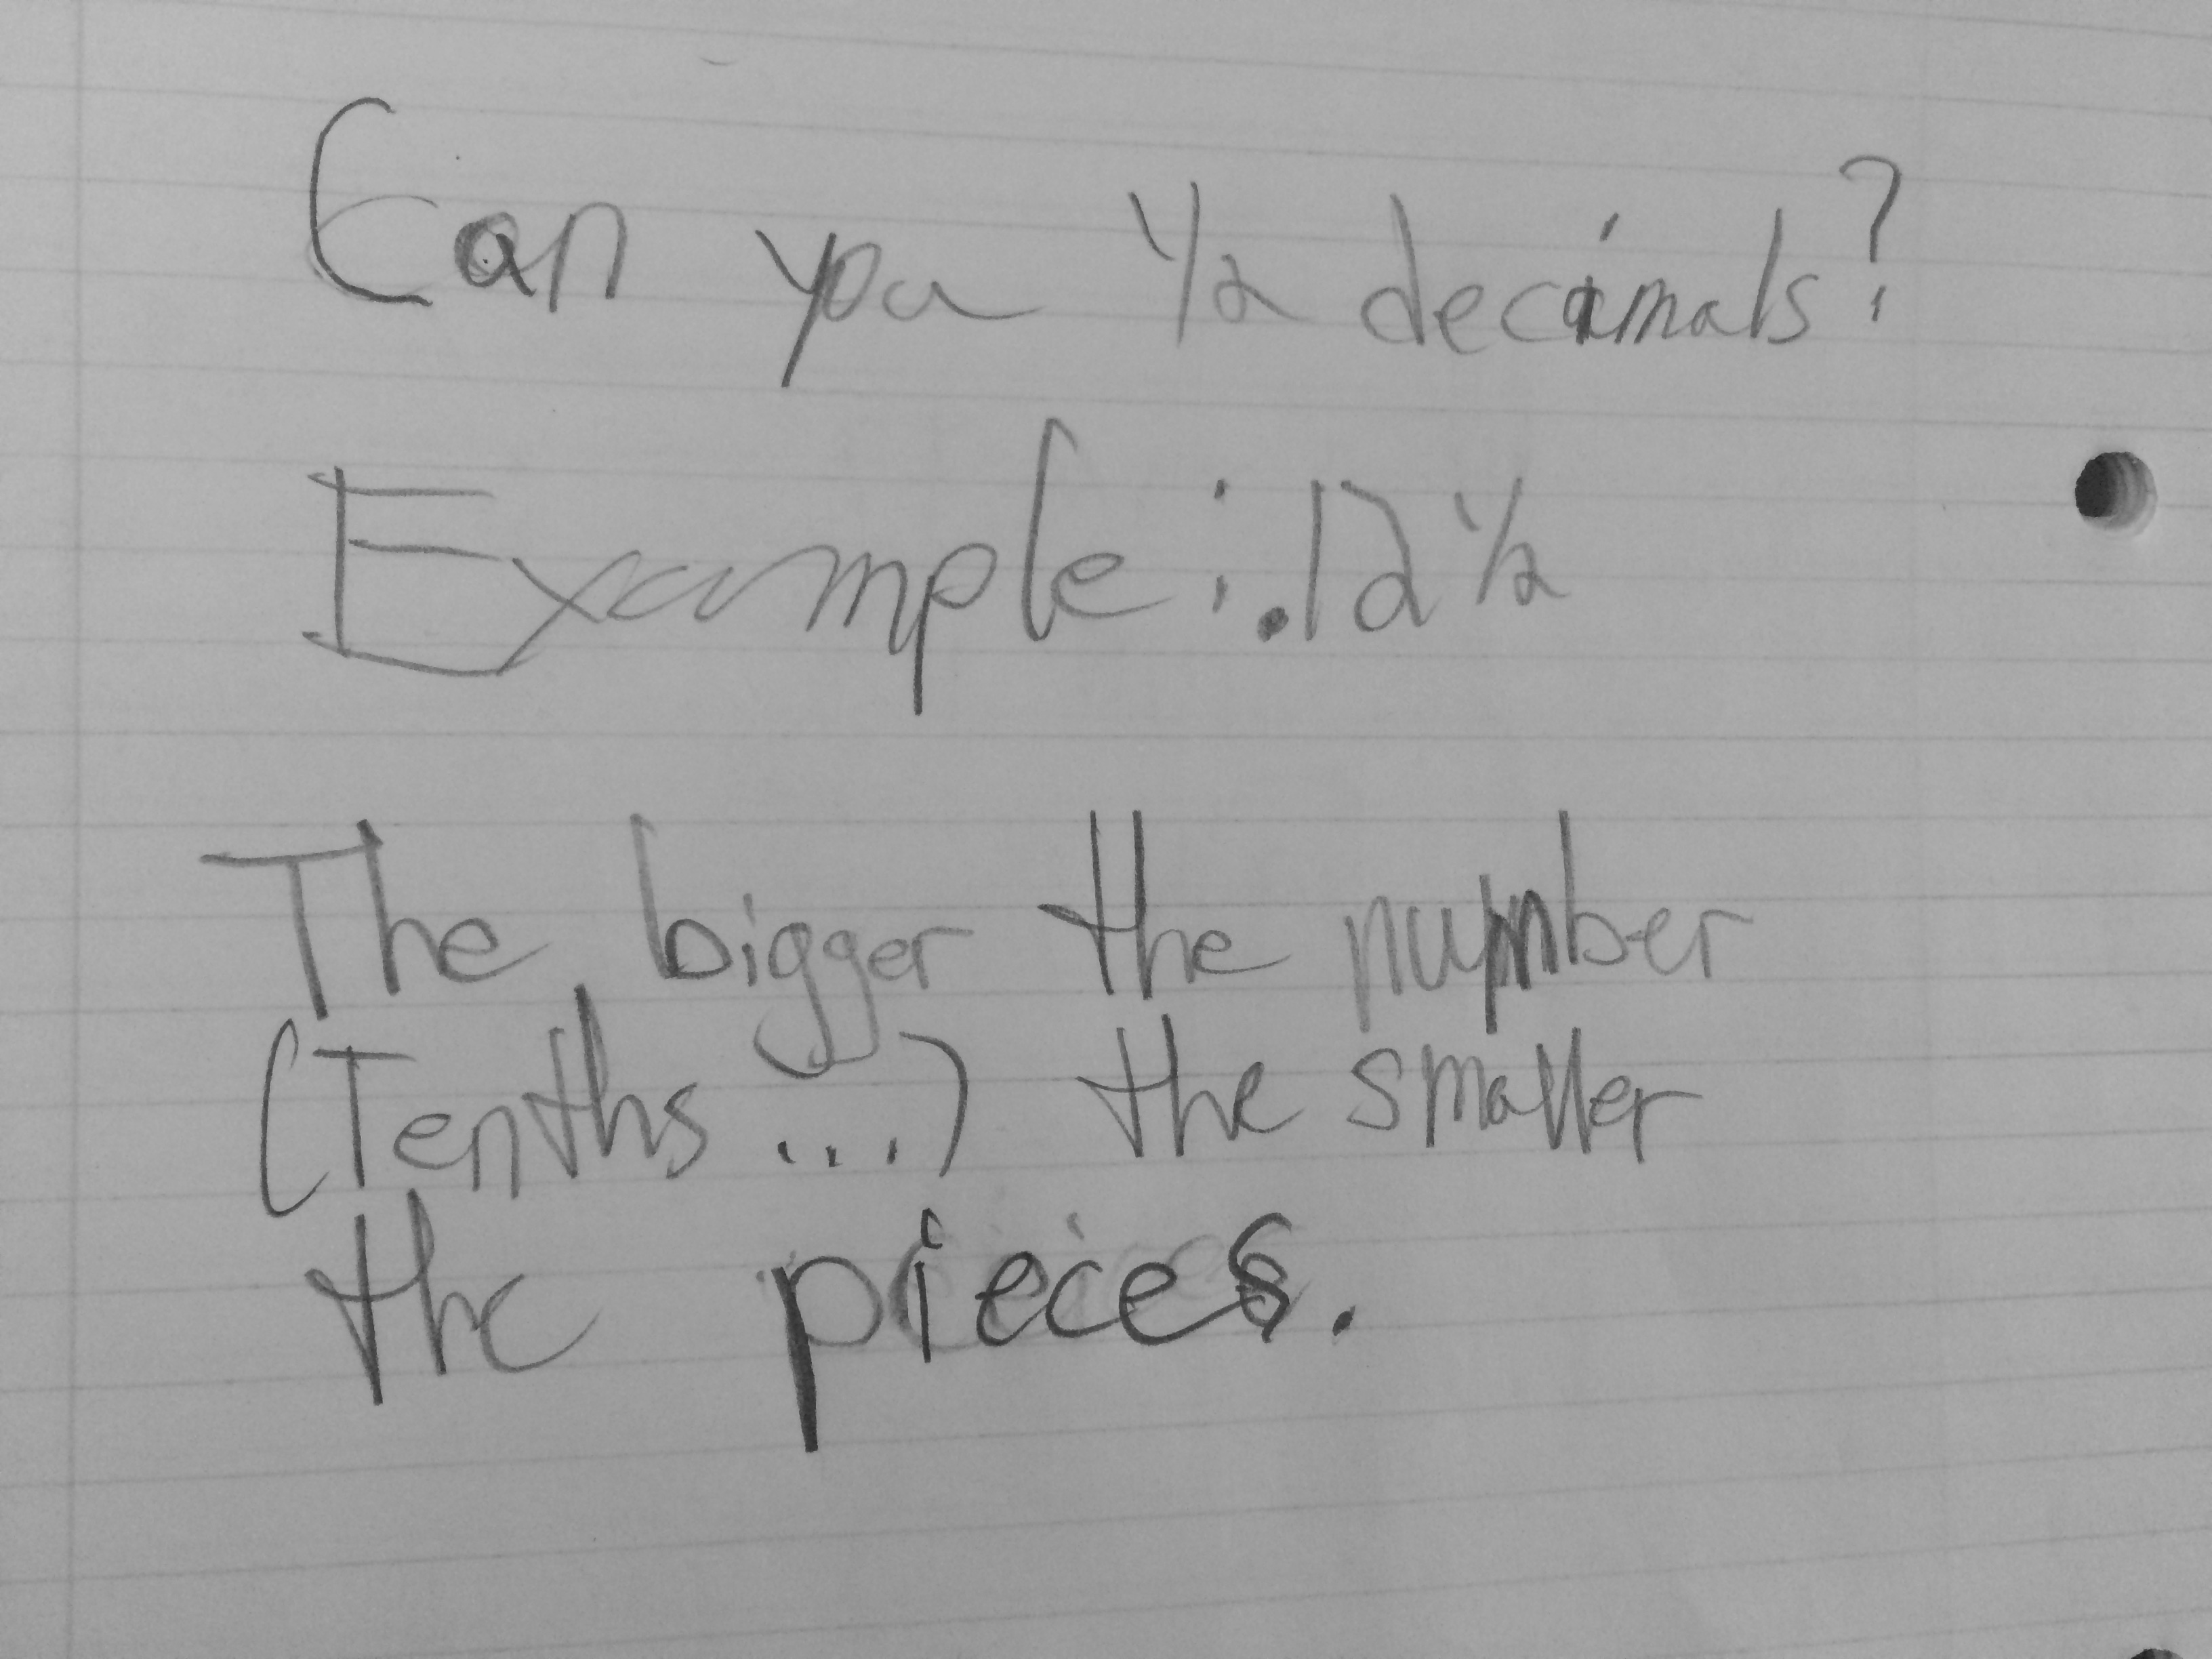 Can you 1/2 decimals?
Example: .12 1/2
The bigger the number
(Tenths...) the smaller
the pieces.